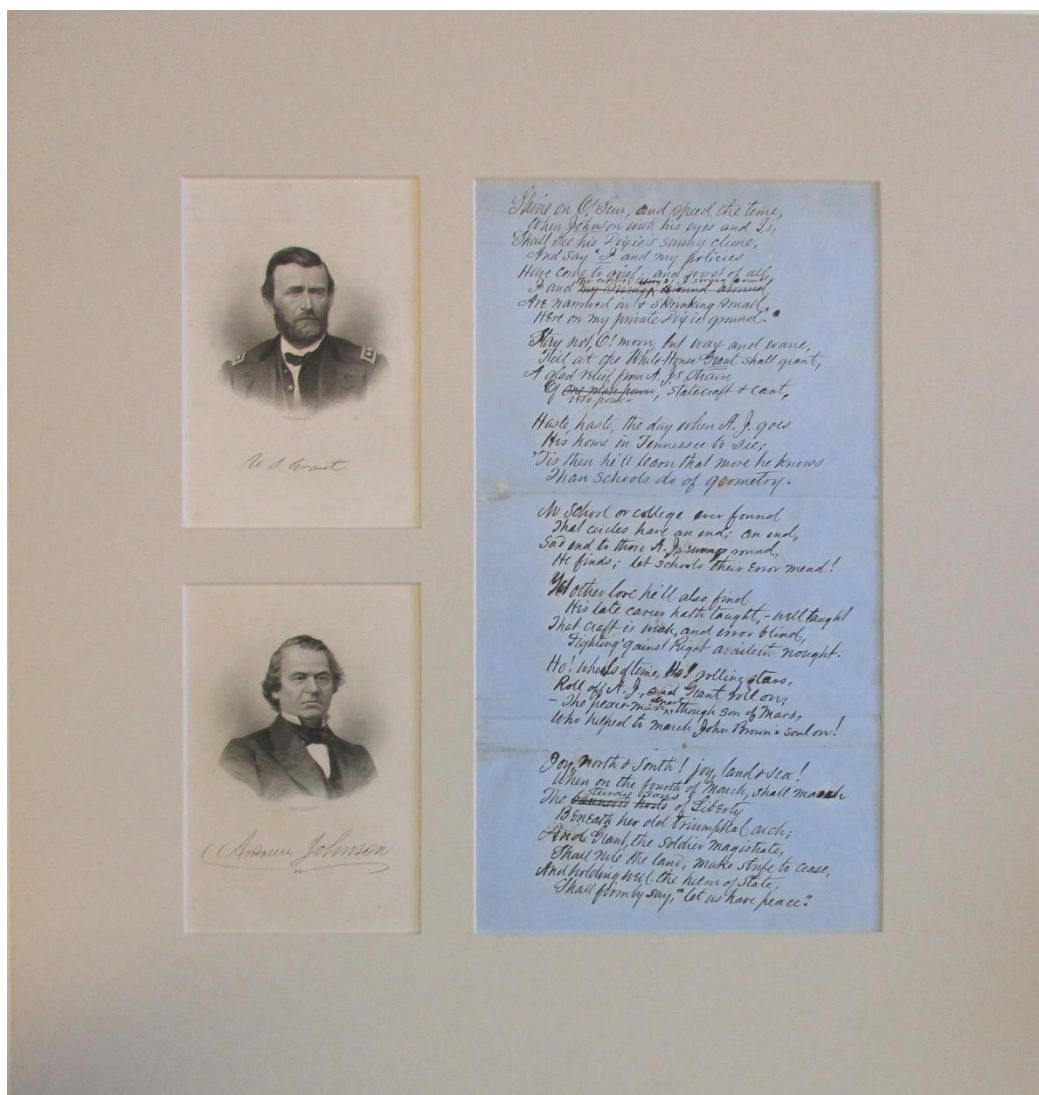 U. S. Grant
Andrew Johnson
Shine on O! Sun, and speed the time,
When Johnson with his eyes and Is,
Shall see his Dixie's sunny clime,
And say "I and my policies
Have come to grief, and worst of all,
the circles I swung round
I and my swings around around
Are narrowed in & shrinking small
Here on my private Dixie ground."
Stay not, O! moon, but wax and wane,
Till at the White House Grant shall grant,
A glad relief from A. J's strain
Of one man power, statecraft & cant,
veto power
Haste, haste, the day when A. J. goes
His home in Tennessee to see;
'Tis then he'll learn that more he knows
Than schools do of geometry.
No school or college ever found
That circles have an end; an end,
Sad end to those A. J. swung round,
He finds; let schools their error mend!
Yet other lore he'll also find
His late career hath taught, – well taught
That craft is weak, and error blind,
Fighting 'gainst Right availeth nought.
Ho! wheels of time, Ho! rolling stars,
Roll off A. J., and Grant roll on;
– The peace-man, though son of Mars,
Who helped to march John Brown's soul on!
Joy, north & South! joy, land & sea!
When on the fourth of March, shall march
sturdy sons
The hosts of Liberty
Beneath her old triumphal arch;
And Grant, the soldier magistrate,
Shall rule the land, make strife to cease,
And holding well the helm of State,
Shall firmly say, "let us have peace."